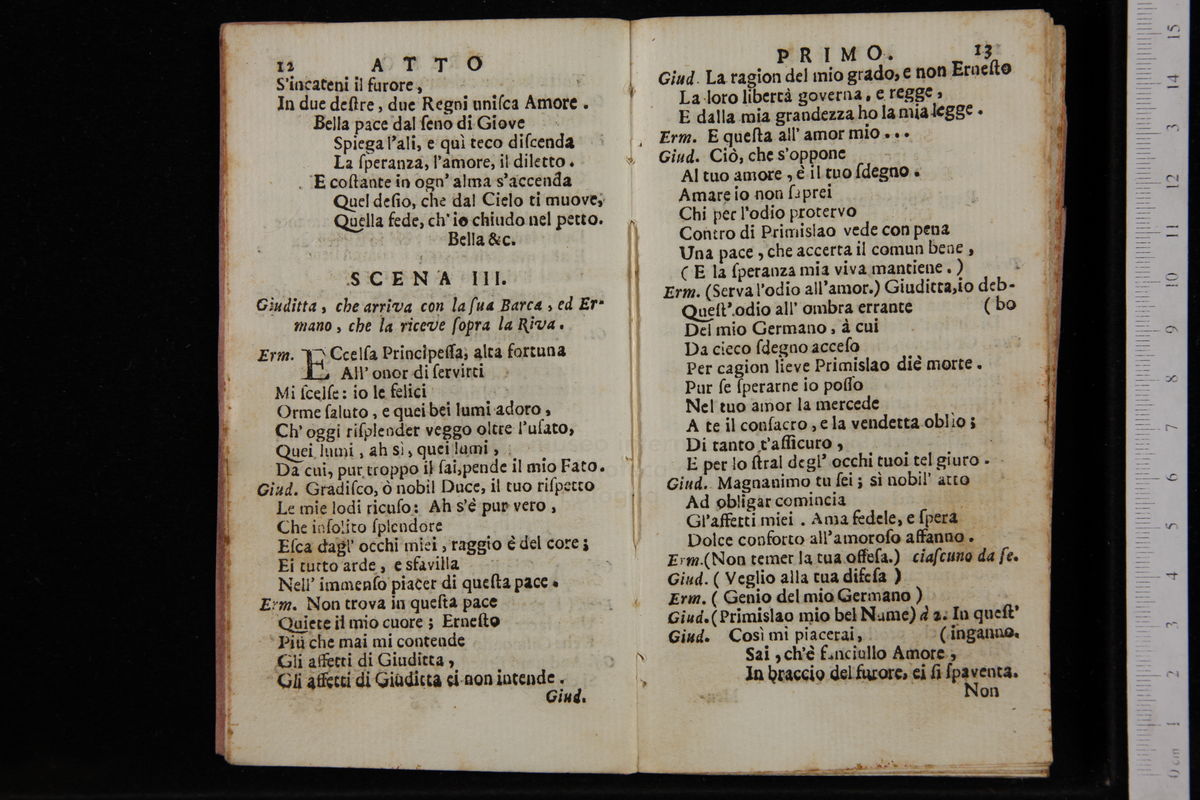 12 ATTO
S'incateni il furore,
In due deſtre, due Regni uniſca Amore.
Bella pace dal ſeno di Giove
Spiega l'ali, e quì teco diſcenda
La ſperanza, l'amore, il diletto.
E coſtante in ogn' alma s'accenda
Quel deſio, che dal Cielo ti muove,
Quella fede, ch' io chiudo nel petto.
Bella &c.
SCENA III.
Giuditta, che arriva con la ſua Barca, ed Er-
mano, che la riceve ſopra la Riva.
Erm. ECcelſa Principeſſa, alta fortuna
All' onor di ſervirti
Mi ſcelſe: io le felici
Orme ſaluto, e quei bei lumi adoro,
Ch' oggi riſplender veggo oltre l'uſato,
Quei lumi, ah sì, quei lumi,
Da cui, pur troppo il ſai, pende il mio Fato.
Giud. Gradiſco, ò nobil Duce, il tuo riſpetto
Le mie lodi ricuſo: Ah s'è pur vero,
Che inſolito ſplendore
Eſca dagl' occhi miei, raggio è del core;
Ei tutto arde, e sfavilla
Nell' immenſo piacer di queſta pace.
Erm. Non trova in queſta pace
Quiete il mio cuore; Erneſto
Più che mai mi contende
Gli affetti di Giuditta,
Gli affetti di Giuditta ei non intende.
Giud.
PRIMO. 13
Giud. La ragion del mio grado, e non Erneſto
La loro libertà governa, e regge,
E dalla mia grandezza ho la mia legge.
Erm. E queſta all' amor mio...
Giud. Ciò, che s'oppone
Al tuo amore, è il tuo ſdegno.
Amare io non ſaprei
Chi per l'odio protervo
Contro di Primislao vede con pena
Una pace, che accerta il comun bene,
( E la ſperanza mia viva mantiene. )
Erm. (Serva l'odio all'amor.) Giuditta, io deb-
Queſt' odio all' ombra errante (bo
Del mio Germano, à cui
Da cieco ſdegno acceſo
Per cagion lieve Primislao diè morte.
Pur ſe ſperarne io poſſo
Nel tuo amor la mercede
A te il conſacro, e la vendetta oblìo;
Di tanto t'aſſicuro,
E per lo ſtral degl' occhi tuoi tel giuro.
Giud. Magnanimo tu ſei; sì nobil' atto
Ad obligar comincia
Gl'affetti miei. Ama fedele, e ſpera
Dolce conforto all'amoroſo affanno.
Erm. (Non temer la tua offeſa.) ciaſcuno da ſe.
Giud. ( Veglio alla tua difeſa )
Erm. ( Genio del mio Germano )
Giud. (Primislao mio bel Nume) à 2. In queſt'
Giud. Così mi piacerai, (inganno.
Sai, ch'è fanciullo Amore,
In braccio del furore, ei ſi ſpaventa.
Non